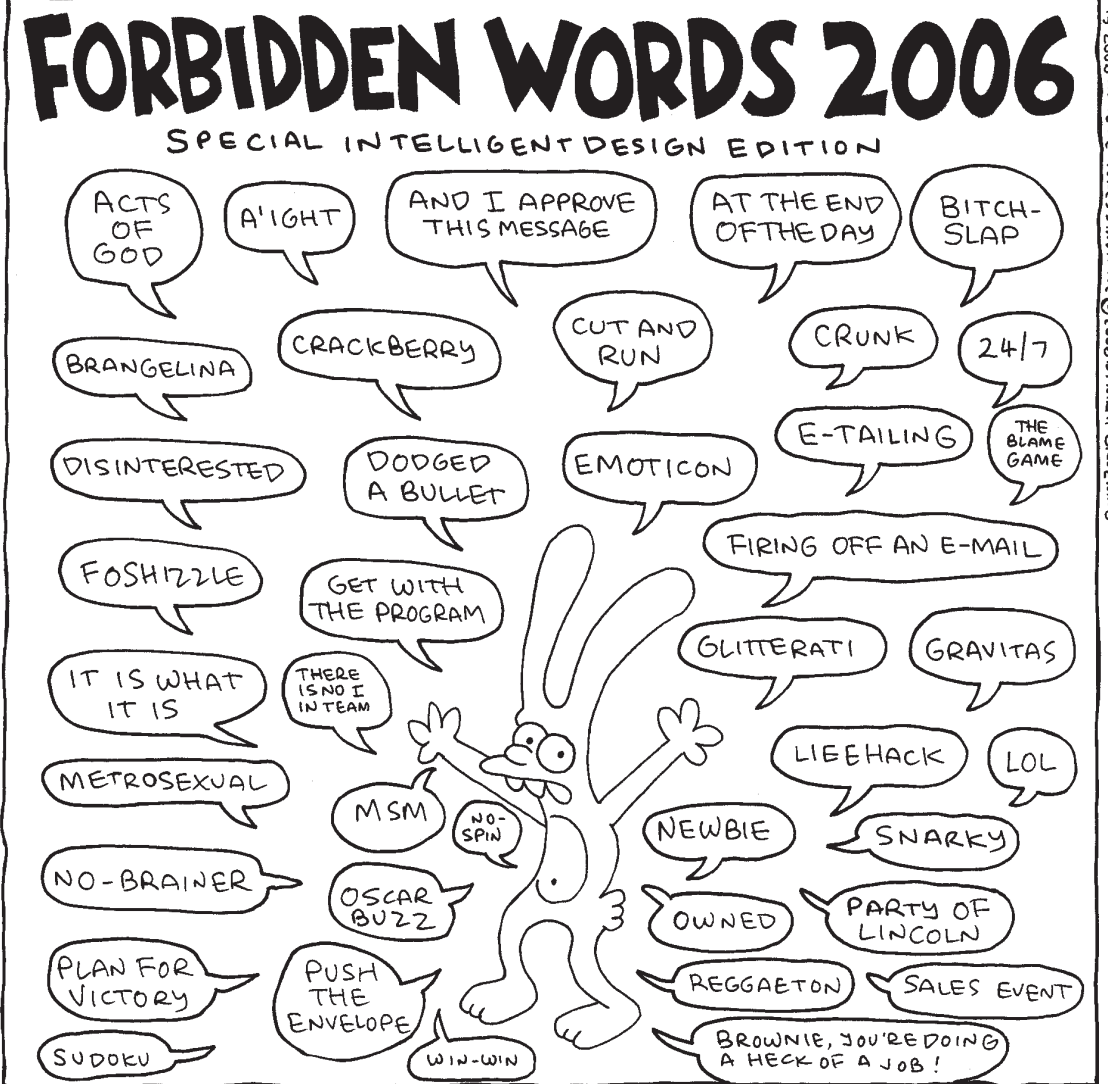 FORBIDDEN WORDS 2006
SPECIAL INTELLIGENT DESIGN EDITION
ACTS
OF
GOD
A'IGHT
AND I APPROVE
THIS MESSAGE
AT THE END
OF THE DAY
BITCH-
SLAP
BRANGELINA
CRACKBERRY
CUT AND
RUN
CRUNK
24/7
DISINTERESTED
DODGED
A BULLET
EMOTICON
E-TAILING
THE
BLAME
GAME
FIRING OFF AN E-MAIL
FOSHIZZLE
GET WITH
THE PROGRAM
GLITTERATI
GRAVITAS
IT IS WHAT
IT IS
THERE
IS NO I
IN TEAM
LIFEHACK
LOL
METROSEXUAL
MSM
NO-
SPIN
NEWBIE
SNARKY
NO-BRAINER
OSCAR
BUZZ
OWNED
PARTY OF
LINCOLN
PLAN FOR
VICTORY
PUSH
THE
ENVELOPE
REGGAETON
SALES EVENT
SUDOKU
WIN-WIN
BROWNIE, YOU'RE DOING
A HECK OF A JOB!